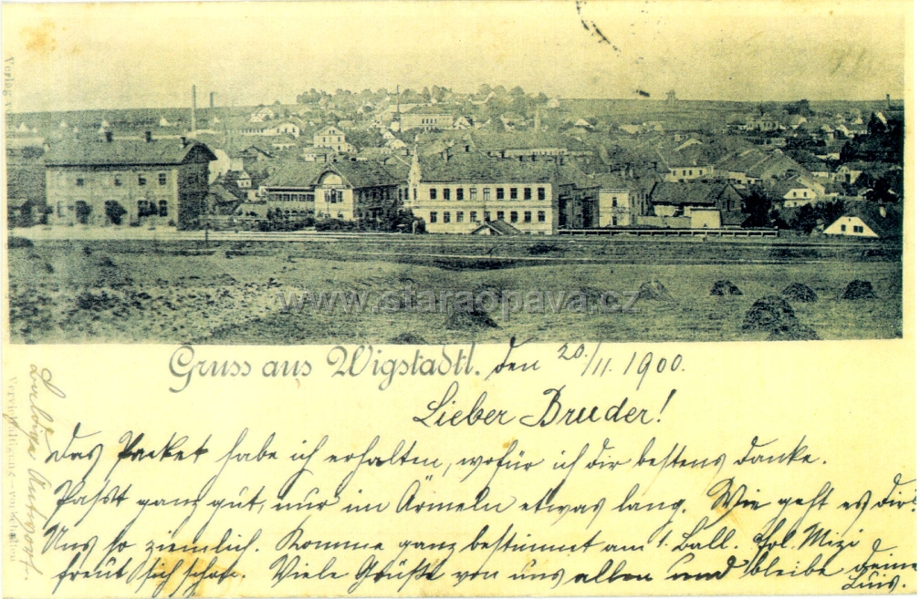 www.staraopava.cz
Gruss aus Wigstadtl. den 20./11. 1900.
Lieber Bruder!
Das Packet habe ich erhalten, wofür ich dir bestens danke.
Passt ganz gut, nur im Ärmeln etwas lang. Wie geht es dir?
Uns so ziemlich. Komme ganz bestimmt am 1. Ball. Mizi
freut sich schon. Viele Grüße von uns allen und bleibe deine
Luis.
Verlag